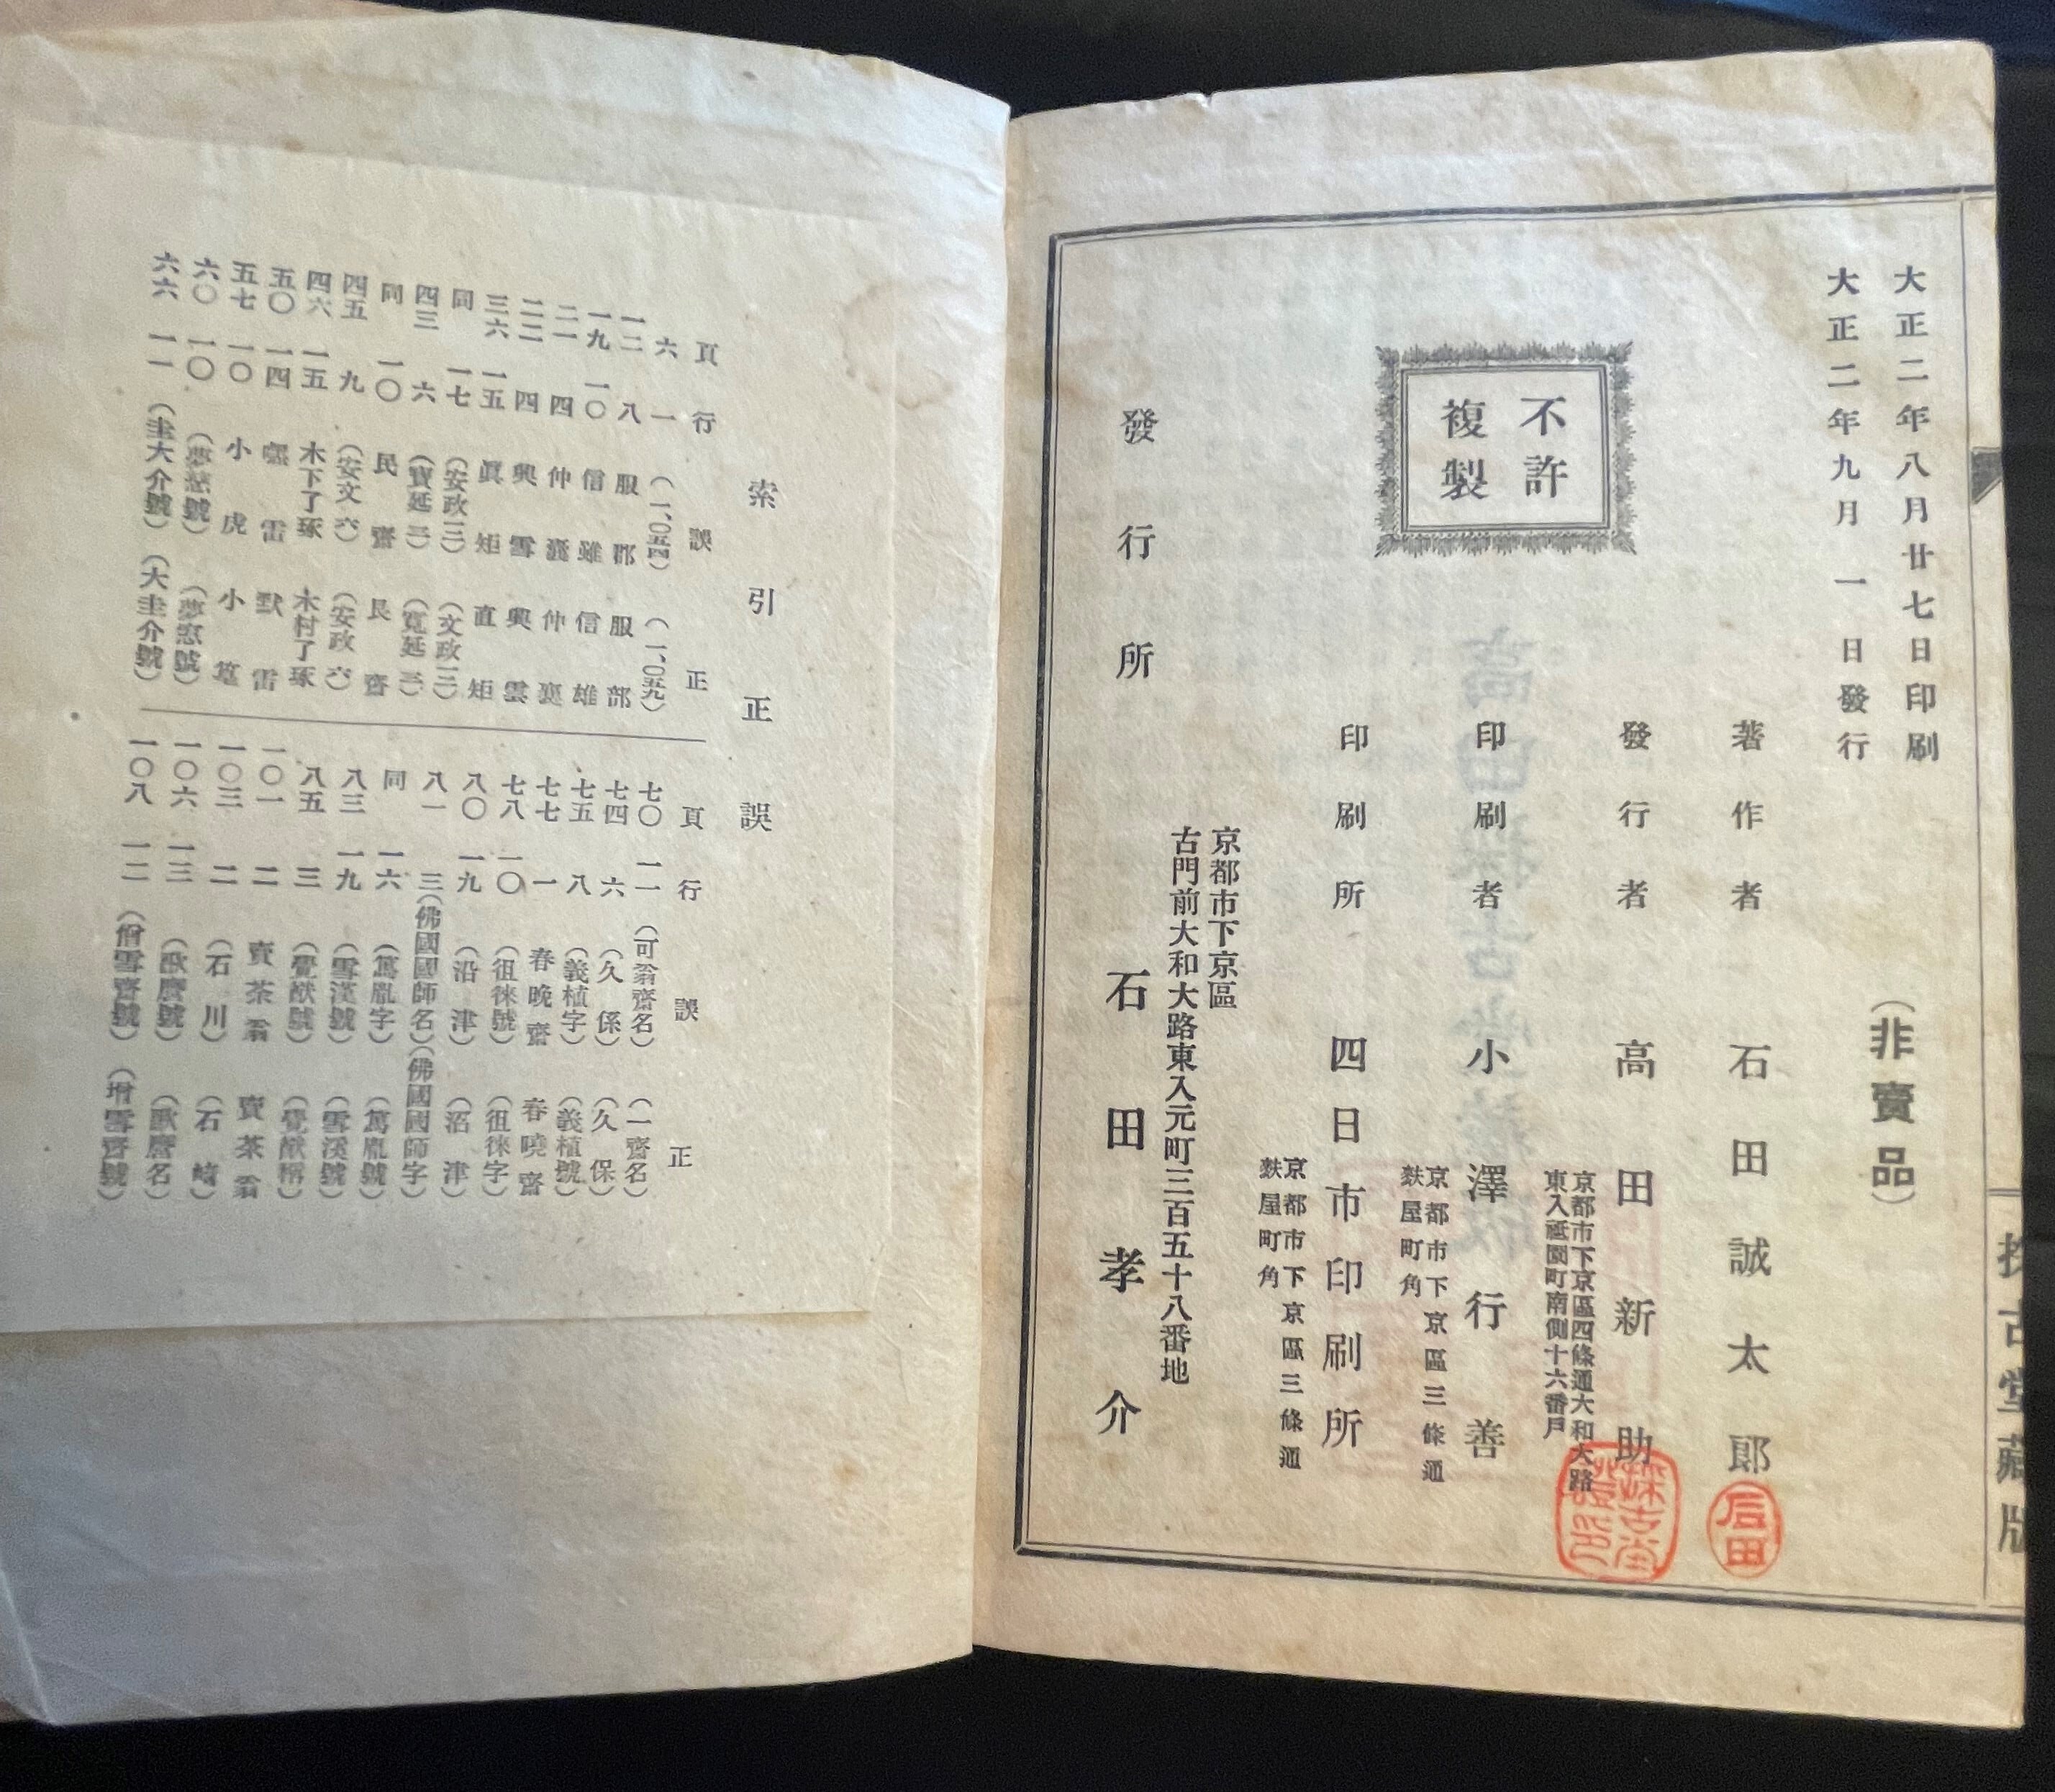 大正二年八月廿七日印刷
大正二年九月一日發行
(非賣品)
著作者 石田誠太郎
發行者 高田新助
京都市下京區四條通大和大路
東入祗園町南側十六番戶
印刷者 小澤行善
京都市下京區三條通
麩屋町角
印刷所 四日市印刷所
京都市下京區三條通
麩屋町角
不許
複製
發行所
京都市下京區
古門前大和大路東入元町三百五十八番地
石田孝介
古堂藏版
索引正誤
頁 行 誤 正
六 一 (一、〇五四) (一、〇五九)
一二 八 服郡 服部
一九 一〇 信雖 信雄
二一 四 仲囊 仲襄
二二 四 興雪 興雲
三六 一五 眞矩 直矩
同 一七 (安政二) (文政二)
四三 六 (寶延三) (寬延三)
同 一〇 民齋 艮齋
四五 九 (安文六) (安政六)
四六 一五 木下了琢 木村了琢
五〇 一四 雷 默雷
五七 一〇 小虎 小篁
六〇 一〇 (夢號) (夢窓號)
六六 一一 (圭大介號) (大圭介號)
頁 行 誤 正
七〇 一一 (可翁齋名) (一齋名)
七四 六 (久係) (久保)
七五 八 (義植字) (義植號)
七七 一 春晚齋 春曉齋
七八 一〇 (徂徠號) (徂徠字)
八〇 一九 (沿津) (沼津)
八一 三 (佛國國師名) (佛國國師字)
同 一六 (萬胤字) (萬胤號)
八三 一九 (雪漢號) (雪溪號)
八五 三 (覺猷號) (覺猷稱)
一〇一 二 賣茶翁 賣茶翁
一〇三 二 (石川) (石崎)
一〇六 一三 (號) (名)
一〇八 一二 (僧雪齋號) (增雪齋號)
石田